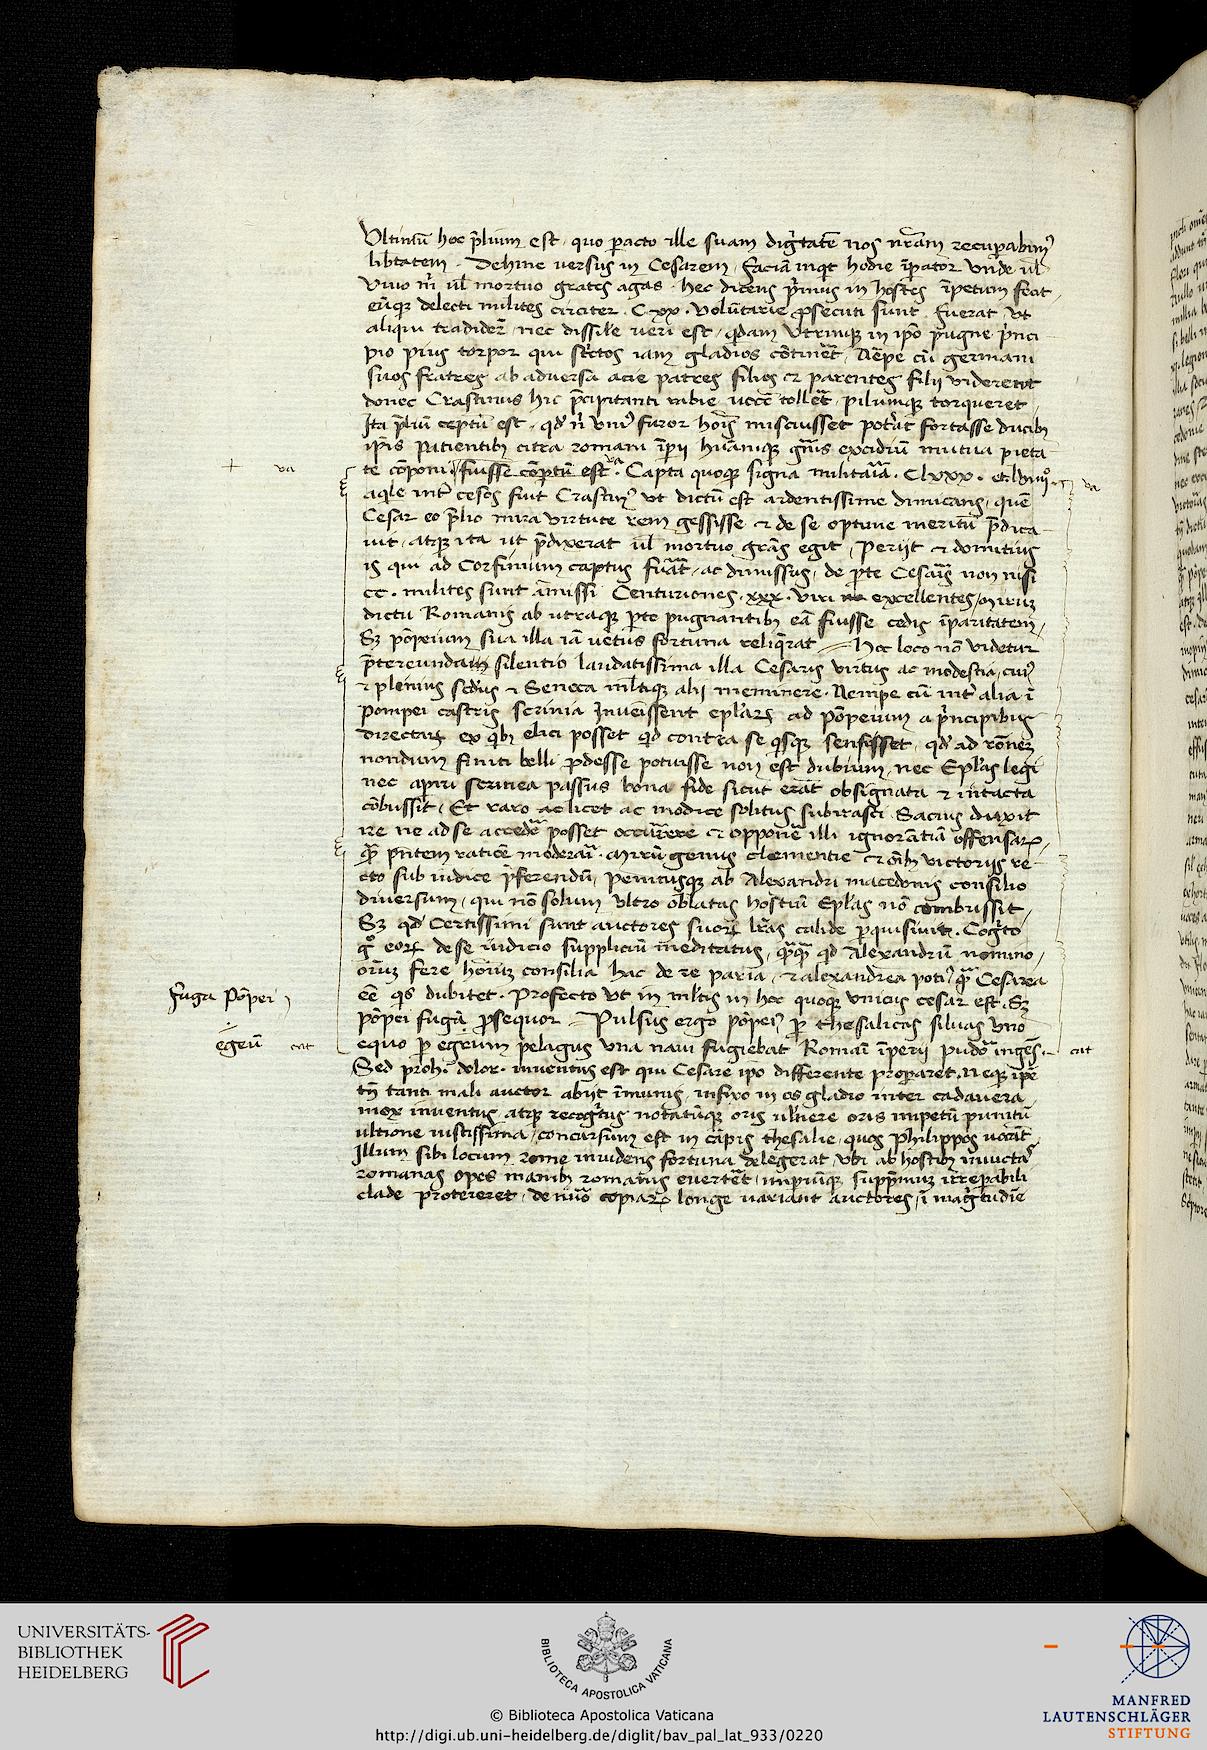 Vltimũ hoc p̃lium est, quo pacto ille suam dig̃tatẽ nos nr̃am recupabimꝰ
libtatem. Dehinc versus in Cesarem, faciã inqt hodie ip̃ator vnde ul
vivo m̃ ul mortuo grates agas. hec dicens p̃mus in hostes ip̃etum fecit
eũqꝫ delecti milites circiter. Cxx. volũtarie ꝓsecuti sunt. fuerat vt
aliqui tradider̃ nec dissile veri est, qdam vtrinqꝫ in ip̃o pugne p̃nci
pio pius torpor qui st̃ctos iam gladios cõtinet̃, Nẽpe cũ germani
suos fratres ab adversa acie patres filios et parentes filij viderẽt
donec Crastinus hic p̃cipitanti rabie uocẽ tollet̃ pilumqꝫ torqueret,
Ita p̃liũ ceptũ est, qd n̄ vniꝰ furor hoĩs miscuisset pot̃at fortasse ducibꝫ
ip̃is patientibꝫ citra romani ip̃ij huãniqꝫ gñis excidiũ mutua pieta
te cõponi, fuisse cõptũ est. Capta quoqꝫ signa militaria. Clxxx. et. viiij
aqle int̃ cesos fuit Crastinꝰ vt dictũ est ardentissime dimicans, quẽ
Cesar eo p̃lio mira virtute rem gessisse et de se optime meritũ p̃dica
uit, atqꝫ ita ut p̃dixerat ul mortuo grãs egit, Perijt et domitius
is qui ad Corfinium captus fũat ac dimissus, de p̃te Cesaris non nisi
cc. milites sunt ãmissi Centuriones. xxx. viri excellentes, mirũ
dictu Romanis ab utraqꝫ p̃te pugnantibꝫ eã fuisse cedis ip̃aritatem,
Sꝫ põpeium sua illa iã vetus fortuna reliq̃rat, Hoc loco nõ videtur
p̃tereundam silentio laudatissima illa Cesaris virtus ac modestia, cuiꝰ
et plenius scdus et Seneca mltiqꝫ alij meminere. Nempe cũ int̃ alia ĩ
Pompei castris scrinia Inueĩssent epl̃arꝫ ad põpeium a p̃ncipibus
directarꝫ ex qbꝫ elici posset qd contra se qsqꝫ sensisset, qd ad rõnem
nondum finiti belli ꝓdesse potuisse non est dubium, nec Epl̃as legi
nec apiri scrinea passus bona fide sicut erãt obsignata et intacta
cõbussit, Et raro ac licet ac modice solitus subirasci. Sacius duxit
ire ne ad se accedẽ posset occurrere et opponẽ illi ignorãtiã offensarꝫ,
Mirũ genus clementie et oĩbꝫ victorijs re
cto sub iudice p̃ferendũ, penitusqꝫ ab Alexandri macedonis consilio
diversum, qui nõ solum vltro oblatas hostiũ Epl̃as nõ combussit,
Sꝫ qd Certissimi sunt auctores suorꝫ lr̃as calide pquisiuit. Cog̃to
gͦ eorꝫ de se iudicio suppliciũ meditatus, q̃q̃ qd Alexandrũ nomino,
oĩuꝫ fere hoĩuꝫ consilia hac de re paria, et alexandrea potiꝰ q̃ Cesarea
eẽ qs dubitet. Profecto vt in ml̃tis in hoc quoqꝫ vnicus cesar est. Sꝫ
põpei fugã ꝓsequor, Pulsus ergo põpeiꝰ p thesalicas siluas vno
equo p egeum pelagus vna naui fugiebat Romãi ip̃erij pudor ingẽs
Sed proh. dolor. inuentus est qui Cesare ip̃o differente properaret. neqꝫ ip̃e
tñ tanti mali auctor abijt ĩmunis, infixo in os gladio inter cadauera
mox inuentus, atqꝫ recog̃tus notatũqꝫ oris ulnere oris impetũ punitũ
ultione iustissima, concursum est in cãpis thesalie, quos philippos uocãt,
Illum sibi locum rome inuidens fortuna delegerat, vbi ab hostibꝫ inuictas
romanas opes manibꝫ romanis euertẽt, impiũqꝫ supp̃muꝫ irrepabili
clade protereret, de nũo copiarꝫ longe variant auctores, ĩ mag̃tudĩe
+ va
va
Fuga Põpei
egeũ cat
cat
UNIVERSITÄTS-
BIBLIOTHEK
HEIDELBERG
BIBLIOTECA APOSTOLICA VATICANA
© Biblioteca Apostolica Vaticana
http://digi.ub.uni-heidelberg.de/diglit/bav_pal_lat_933/0220
MANFRED
LAUTENSCHLÄGER
STIFTUNG